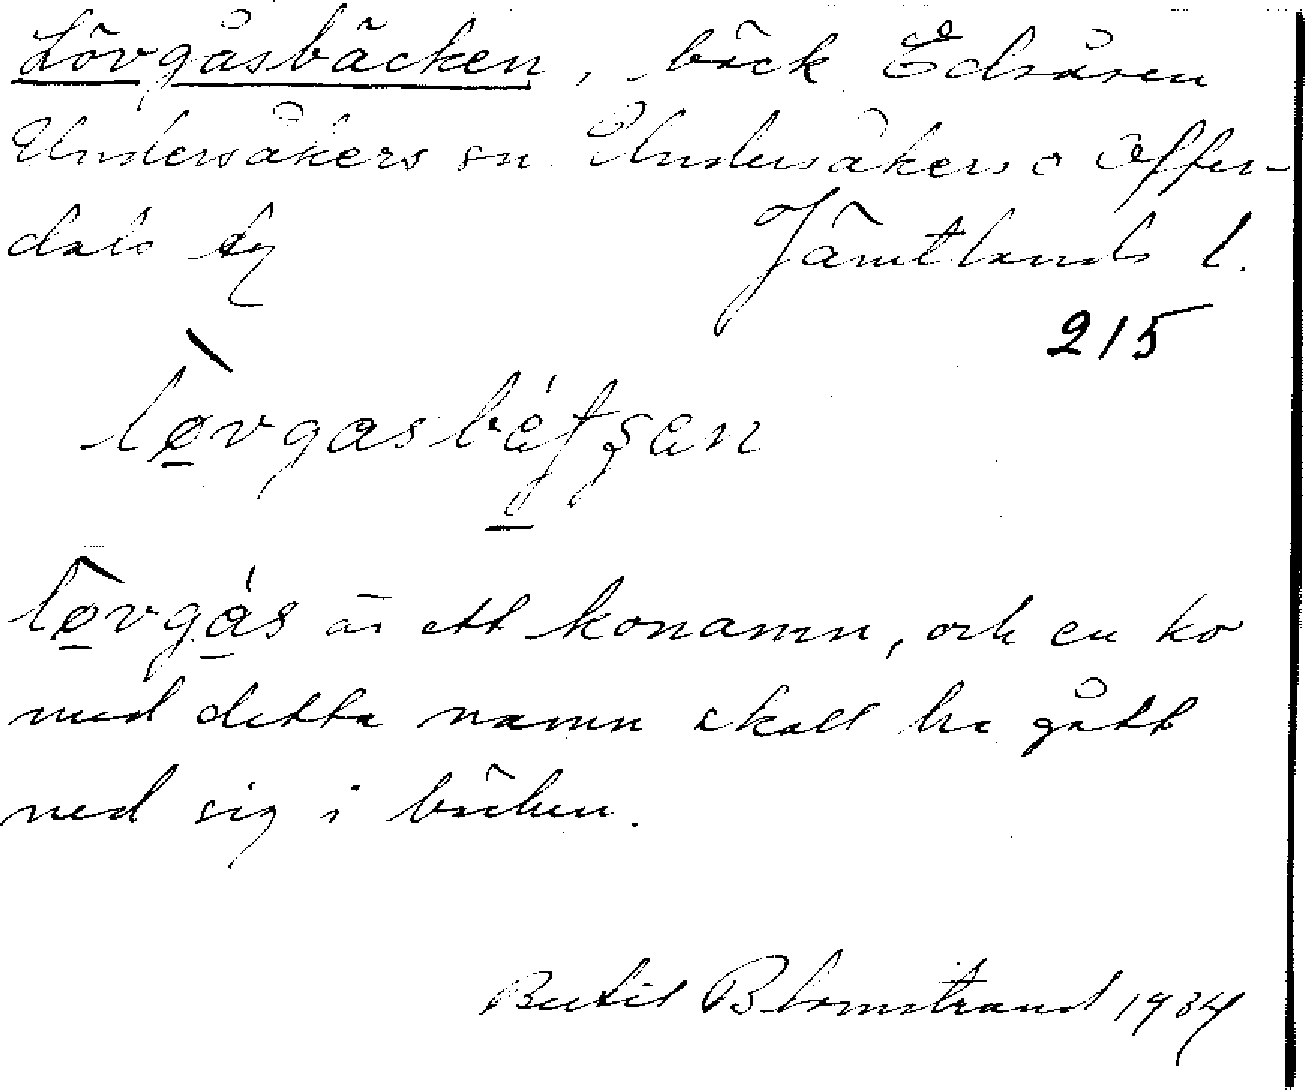 Lövgåsbäcken, bäck Edsåsen
Undersåkers sn Undersåkers o Offer-
dals tg Jämtlands l.
215
lø̱vgasbę́tşən
lø̱vgås är ett konamn, och en ko
med detta namn skall ha gått
ned sig i bäcken.
Bertil Blomstrand 1934